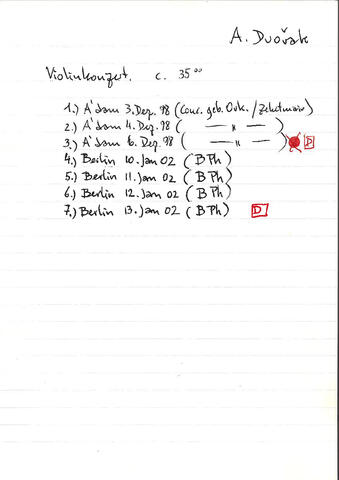 A. Dvořak
Violinkonzert. c. 35°°
1.) A'dam 3. Dez. 98 (Conc. geb. Ork. / Zehetmair)
2.) A'dam 4. Dez. 98 ( —— " —— )
3.) A'dam 6. Dez. 98 ( —— " —— ) D
4.) Berlin 10. Jan 02 (B Ph)
5.) Berlin 11. Jan 02 (B Ph)
6.) Berlin 12. Jan 02 (B Ph)
7.) Berlin 13. Jan 02 (B Ph) D